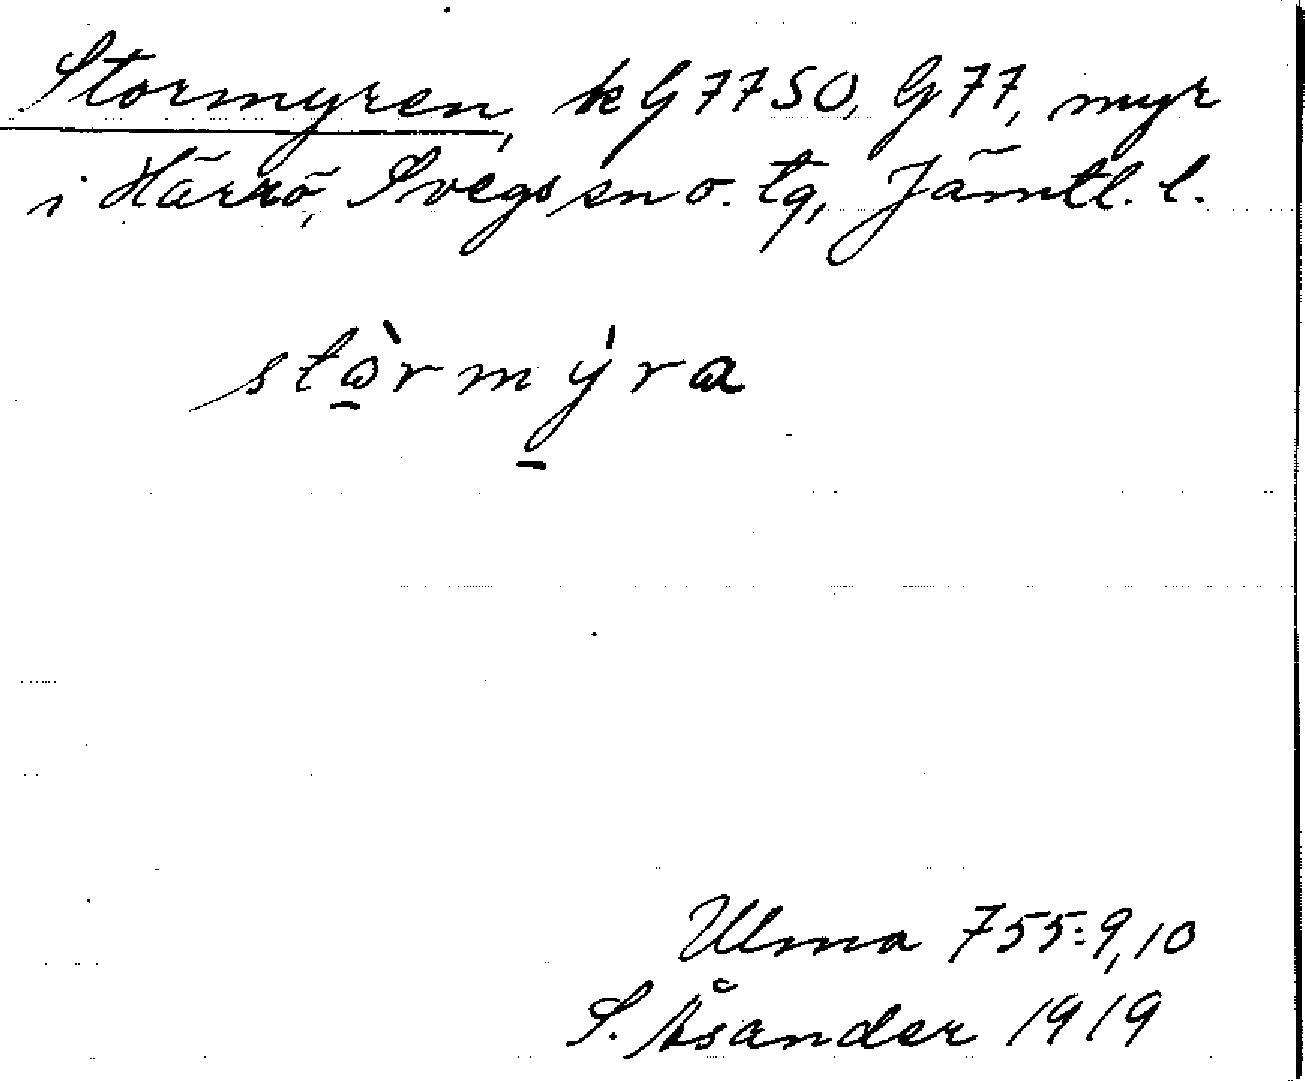 Stormyren, kG 7750, G 77, myr
i Härrö, Svegs sn o. tg, Jämtl. l.
stὼ̱rmý̱ra
Ulma 755:9,10
S. Åsander 1919